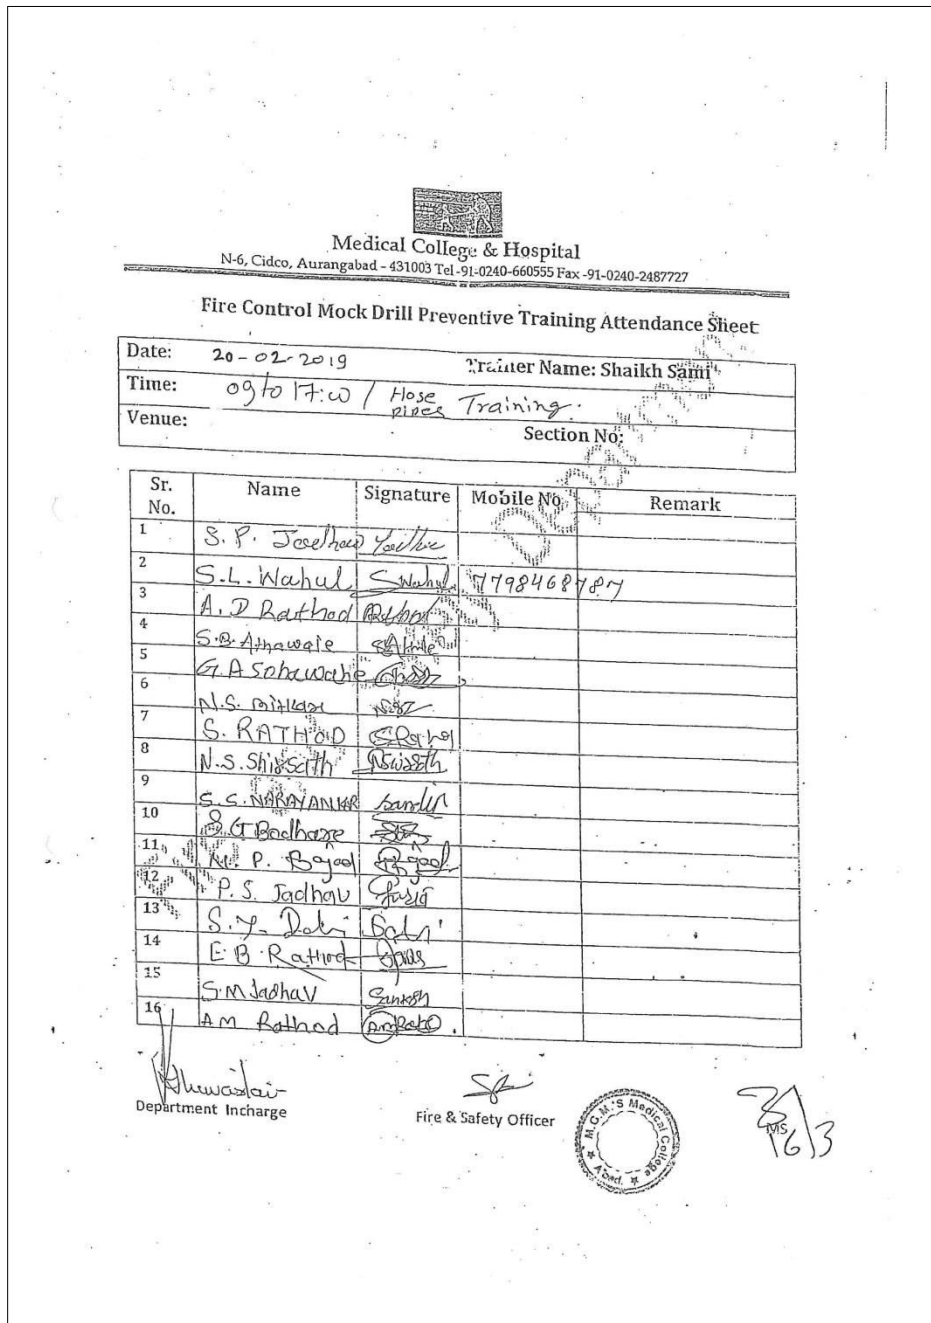 Medical College & Hospital
N-6, Cidco, Aurangabad - 431003 Tel -91-0240-660555 Fax -91-0240-2487727
Fire Control Mock Drill Preventive Training Attendance Sheet
Date: 20-02-2019 Trainer Name: Shaikh Sami
Time: 09 to 17:00 / Hose pipes Training.
Venue: Section No:
Sr. No. Name Signature Mobile No. Remark
1 S. P.
2 S.L. Wahul Swahul 7798468787
3 A. D Rathod Rathod
4 S.B. Athawale
5 G.A Sonawane
6 N.S.
7 S. RATHOD S Rathod
8 N.S. Shirsath
9 S.S. NARAYANKAR
10 S G Bodhare
11 P.
12 P.S. Jadhav
13 S.Y. Dalvi Dalvi
14 E B Rathod
15 S.M Jadhav Santosh
16 A M Rathod
Department Incharge
Fire & Safety Officer
M.G.M.'S Medical College
A'bad.
MS
16/3